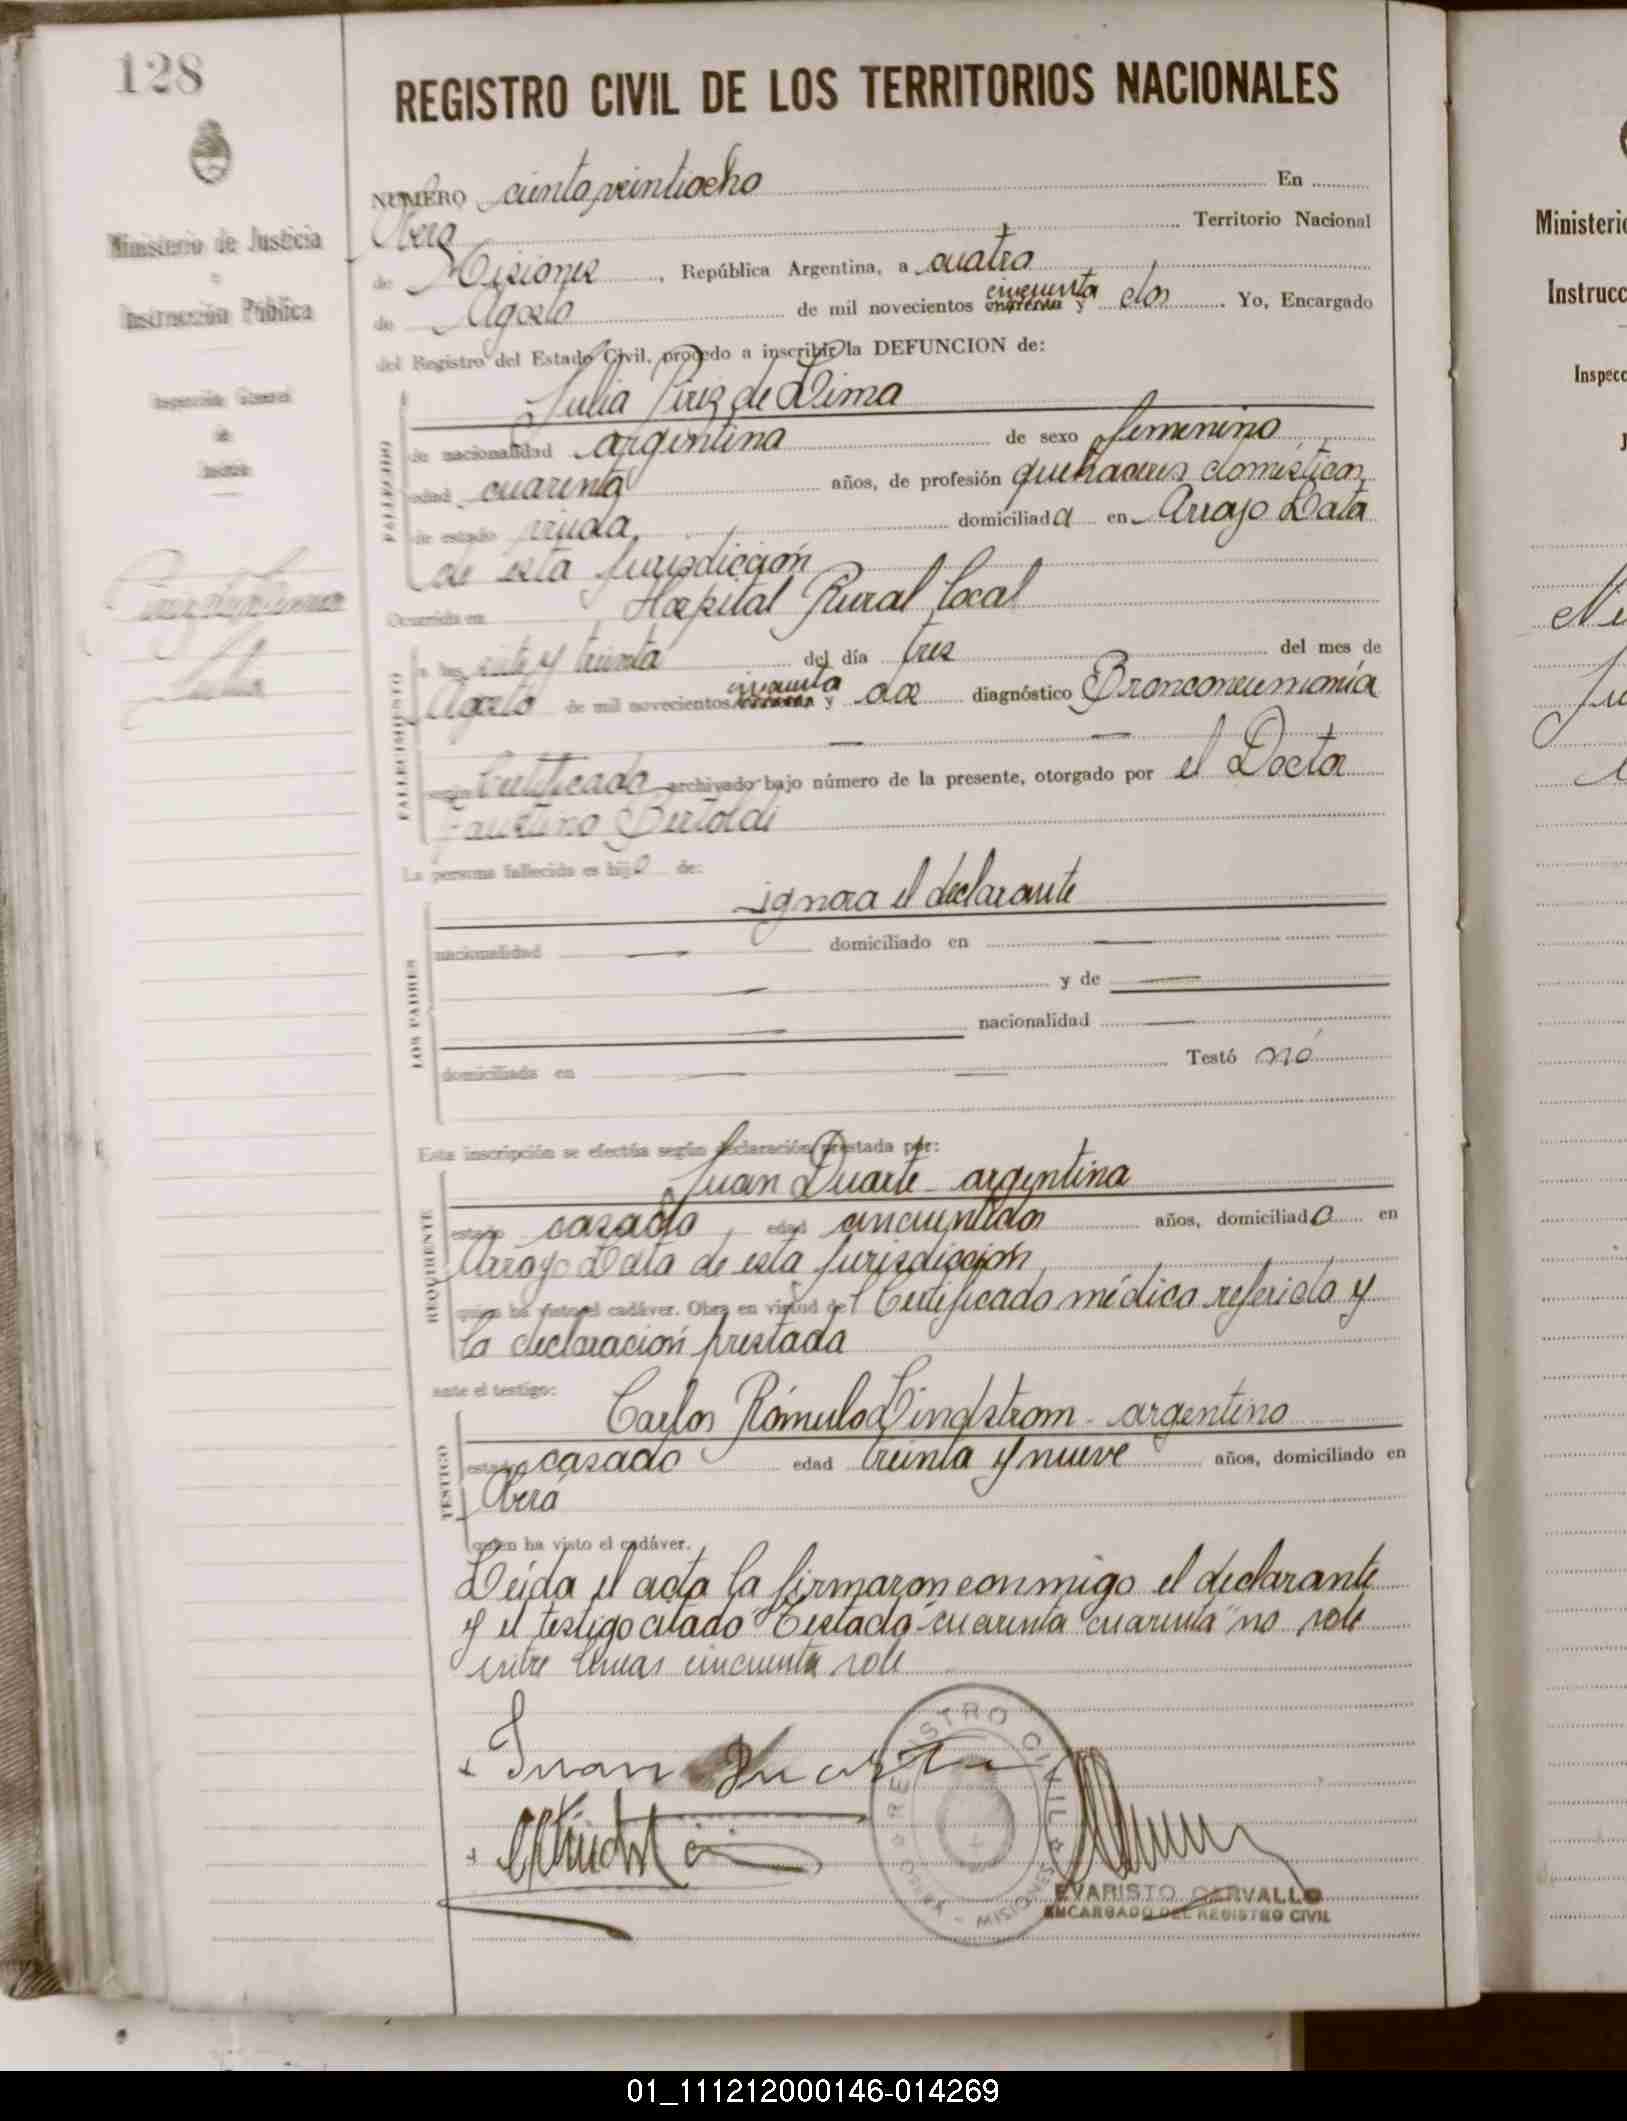 128
REGISTRO CIVIL DE LOS TERRITORIOS NACIONALES
Ministerio de Justicia
e
Instrucción Pública
Inspección General
de
Justicia
NUMERO ciento veintiocho En
Oberá Territorio Nacional
de Misiones, República Argentina, a cuatro
de Agosto de mil novecientos cincuenta y dos. Yo, Encargado
del Registro del Estado Civil, procedo a inscribir la DEFUNCION de:
Julia Piriz de Lima
de nacionalidad argentina de sexo femenino
edad cuarenta años, de profesión quehaceres domésticos,
de estado viuda, domiciliada en Arroyo Bata
de esta jurisdicción
Ocurrida en Hospital Rural local
FALLECIMIENTO
a las siete y treinta del día tres del mes de
Agosto de mil novecientos cincuenta y dos diagnóstico Bronconeumonía
según Certificado archivado bajo número de la presente, otorgado por el Doctor
Faustino Bertoldi
La persona fallecida es hija de:
LOS PADRES
ignora el declarante
nacionalidad domiciliado en
y de
nacionalidad
domiciliada en Testó nó
Esta inscripción se efectúa según declaración prestada por:
REQUIRENTE
Juan Duarte - argentina
estado casado, edad cincuentidos años, domiciliado en
Arroyo Bata de esta jurisdicción
quien ha visto el cadáver. Obra en virtud del Certificado médico referido y
la declaración prestada
ante el testigo:
TESTIGO
Carlos Rómulo Lindstrom - argentino
estado casado edad treinta y nueve años, domiciliado en
Oberá
quien ha visto el cadáver.
Leída el acta la firmaron conmigo el declarante
y el testigo citado "Testado "cuarenta cuarenta" no vale
entre líneas cincuenta vale
Juan Duarte
REGISTRO CIVIL
MISIONES
EVARISTO CARVALLO
ENCARGADO DEL REGISTRO CIVIL
Ministerio
Instrucc
Inspecc
01_111212000146-014269